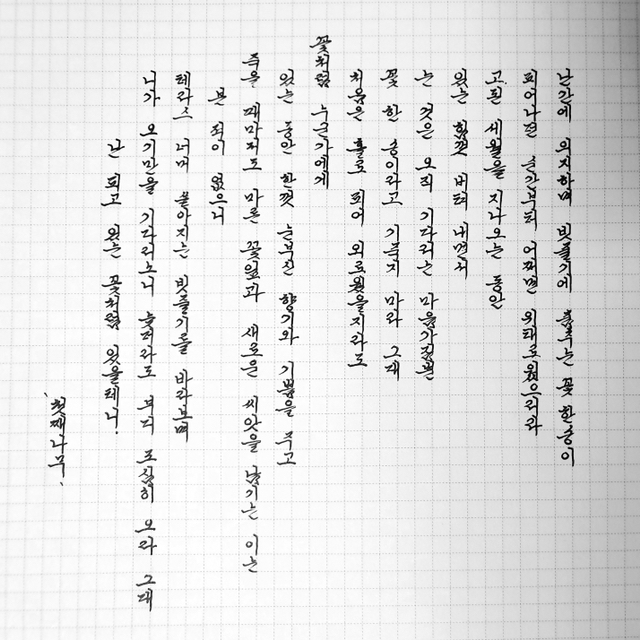 난간에 의지하며 빗줄기에 춤추는 꽃 한송이
피어나던 순간부터 어쩌면 위태로웠으리라
고된 세월을 지나오는 동안
있는 힘껏 버텨 내면서
는 것은 오직 기다리는 마음가짐뿐
꽃 한 송이라고 기죽지 마라 그대
처음은 홀로 피어 외로웠을지라도
꽃처럼 누군가에게
있는 동안 한껏 눈부신 향기와 기쁨을 주고
죽을 때마저도 마른 꽃잎과 새로운 씨앗을 남기는 이는
본 적이 없으니
테라스 너머 쏟아지는 빗줄기를 바라보며
니가 오기만을 기다리노니 늦더라도 부디 조심히 오라 그대
난 피고 있는 꽃처럼 있을테니.
'첫째나무'